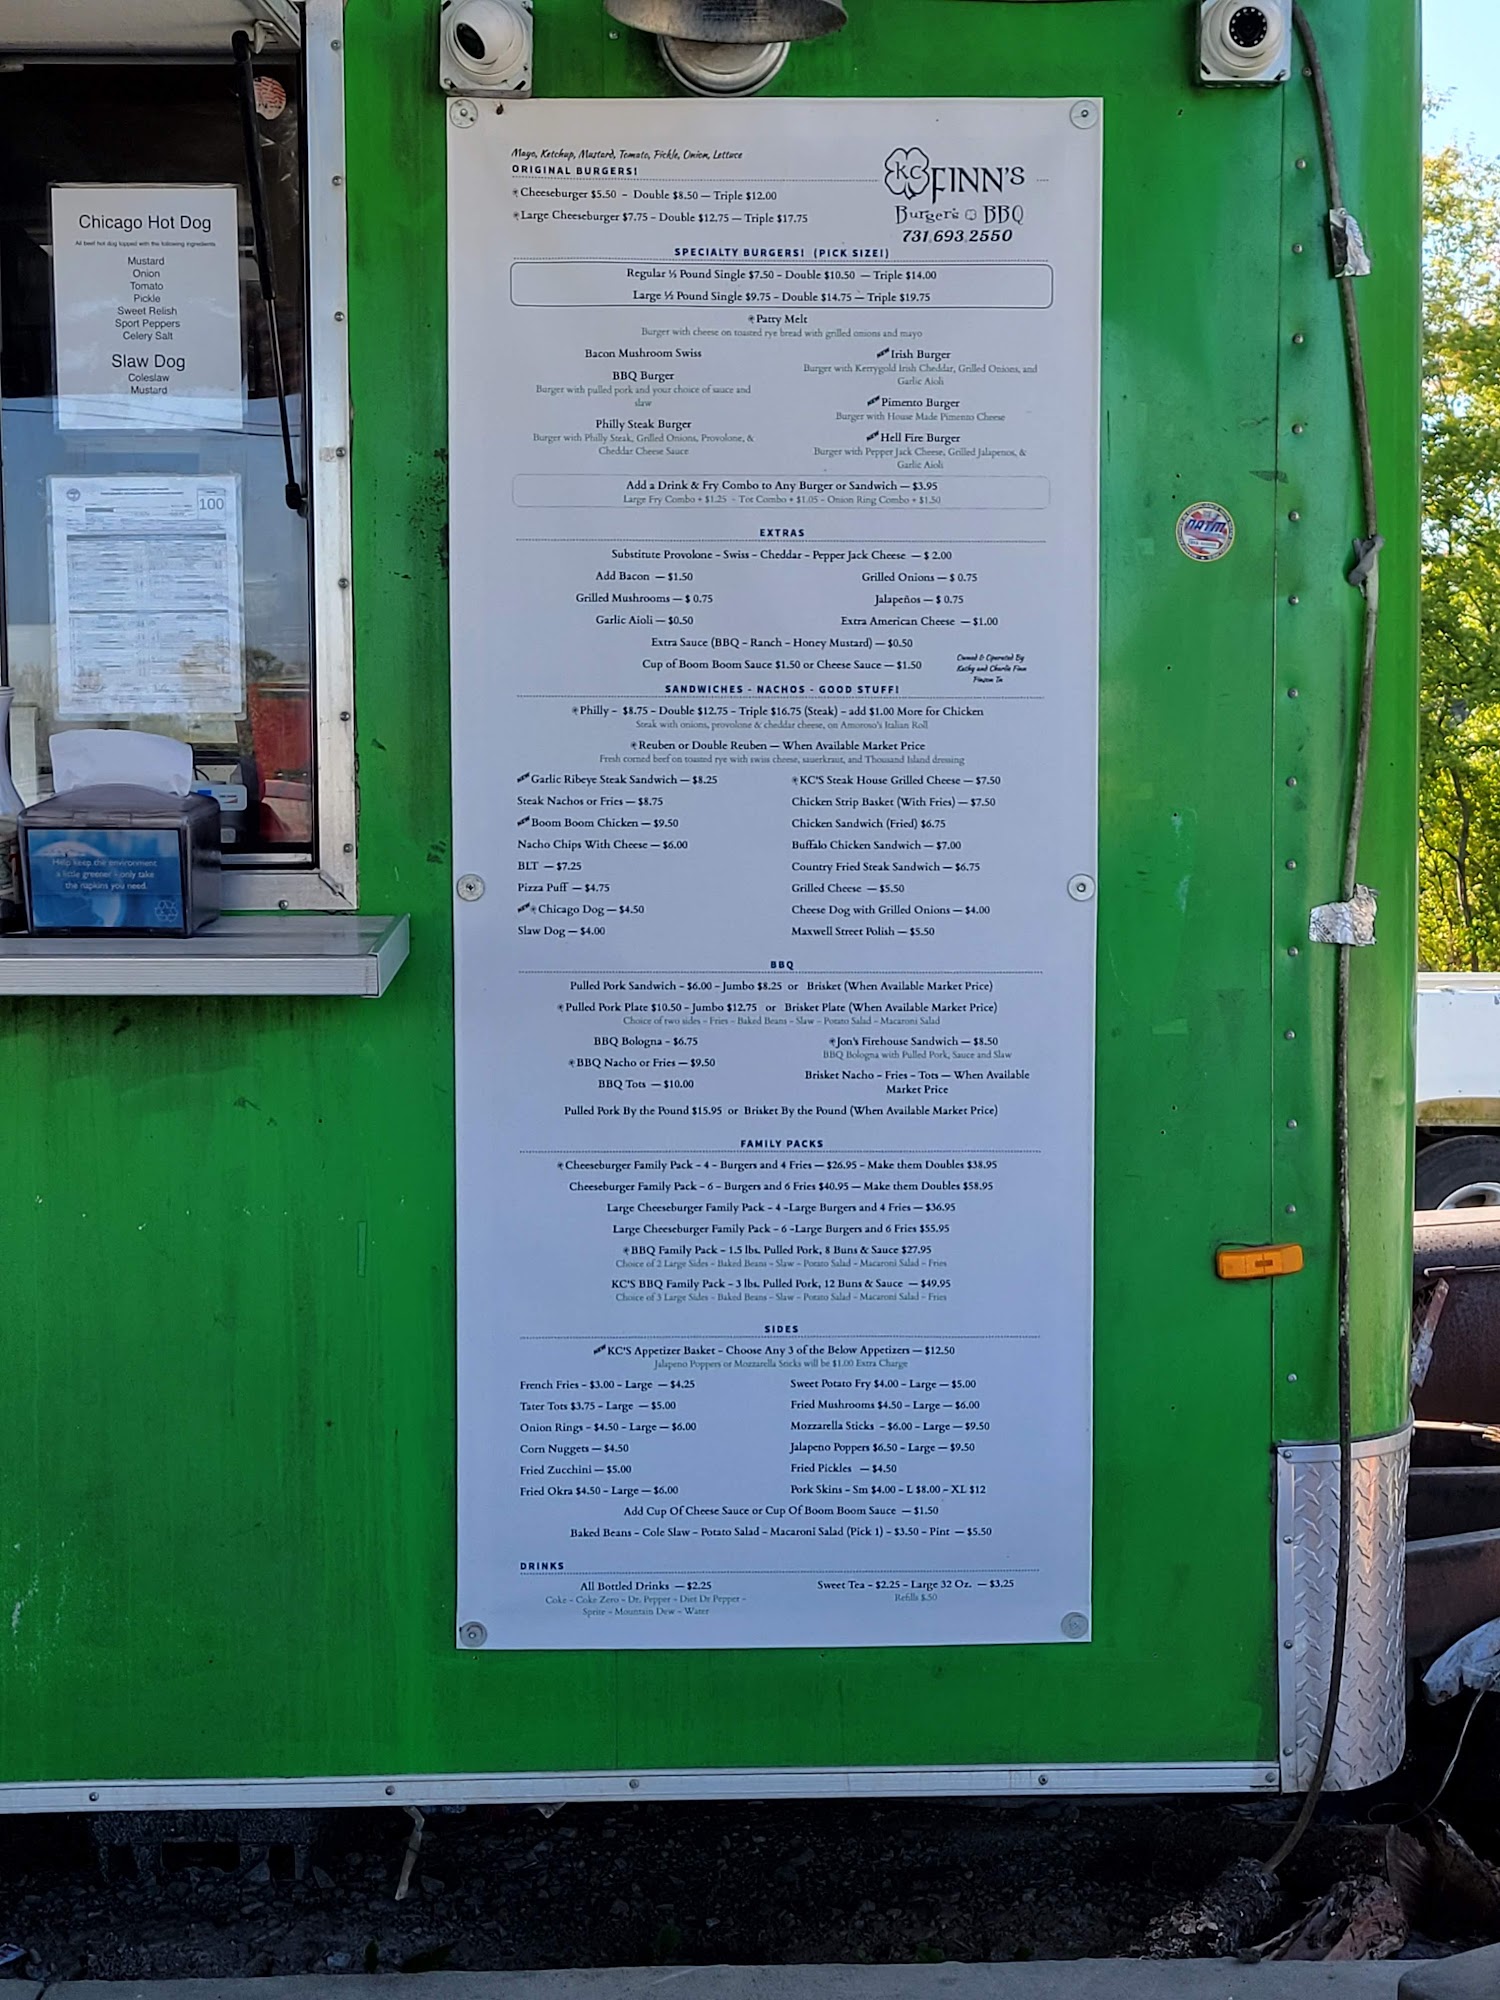 Chicago Hot Dog
All beef hot dog topped with the following ingredients
Mustard
Onion
Tomato
Pickle
Sweet Relish
Sport Peppers
Celery Salt
Slaw Dog
Coleslaw
Mustard
100
Help keep the environment
a little greener - only take
the napkins you need.
Mayo, Ketchup, Mustard, Tomato, Pickle, Onion, Lettuce
ORIGINAL BURGERS!
Cheeseburger $5.50 - Double $8.50 — Triple $12.00
Large Cheeseburger $7.75 - Double $12.75 — Triple $17.75
KC FINN'S
Burgers BBQ
731.693.2550
SPECIALTY BURGERS! (PICK SIZE!)
Regular ⅓ Pound Single $7.50 - Double $10.50 — Triple $14.00
Large ½ Pound Single $9.75 - Double $14.75 — Triple $19.75
Patty Melt
Burger with cheese on toasted rye bread with grilled onions and mayo
Bacon Mushroom Swiss
BBQ Burger
Burger with pulled pork and your choice of sauce and
slaw
Philly Steak Burger
Burger with Philly Steak, Grilled Onions, Provolone, &
Cheddar Cheese Sauce
NEW Irish Burger
Burger with Kerrygold Irish Cheddar, Grilled Onions, and
Garlic Aioli
NEW Pimento Burger
Burger with House Made Pimento Cheese
NEW Hell Fire Burger
Burger with Pepper Jack Cheese, Grilled Jalapenos, &
Garlic Aioli
Add a Drink & Fry Combo to Any Burger or Sandwich — $3.95
Large Fry Combo + $1.25 - Tot Combo + $1.05 - Onion Ring Combo + $1.50
EXTRAS
Substitute Provolone - Swiss - Cheddar - Pepper Jack Cheese — $ 2.00
Add Bacon — $1.50
Grilled Onions — $ 0.75
Grilled Mushrooms — $ 0.75
Jalapeños — $ 0.75
Garlic Aioli — $0.50
Extra American Cheese — $1.00
Extra Sauce (BBQ - Ranch - Honey Mustard) — $0.50
Cup of Boom Boom Sauce $1.50 or Cheese Sauce — $1.50
Owned & Operated By
Kathy and Charlie Finn
Pinson Tn
SANDWICHES - NACHOS - GOOD STUFF!
Philly - $8.75 - Double $12.75 - Triple $16.75 (Steak) - add $1.00 More for Chicken
Steak with onions, provolone & cheddar cheese, on Amoroso's Italian Roll
Reuben or Double Reuben — When Available Market Price
Fresh corned beef on toasted rye with swiss cheese, sauerkraut, and Thousand Island dressing
NEW Garlic Ribeye Steak Sandwich — $8.25
KC'S Steak House Grilled Cheese — $7.50
Steak Nachos or Fries — $8.75
Chicken Strip Basket (With Fries) — $7.50
NEW Boom Boom Chicken — $9.50
Chicken Sandwich (Fried) $6.75
Nacho Chips With Cheese — $6.00
Buffalo Chicken Sandwich — $7.00
BLT — $7.25
Country Fried Steak Sandwich — $6.75
Pizza Puff — $4.75
Grilled Cheese — $5.50
NEW Chicago Dog — $4.50
Cheese Dog with Grilled Onions — $4.00
Slaw Dog — $4.00
Maxwell Street Polish — $5.50
BBQ
Pulled Pork Sandwich - $6.00 - Jumbo $8.25 or Brisket (When Available Market Price)
Pulled Pork Plate $10.50 - Jumbo $12.75 or Brisket Plate (When Available Market Price)
Choice of two sides - Fries - Baked Beans - Slaw - Potato Salad - Macaroni Salad
BBQ Bologna - $6.75
BBQ Nacho or Fries — $9.50
BBQ Tots — $10.00
Jon's Firehouse Sandwich — $8.50
BBQ Bologna with Pulled Pork, Sauce and Slaw
Brisket Nacho - Fries - Tots — When Available
Market Price
Pulled Pork By the Pound $15.95 or Brisket By the Pound (When Available Market Price)
FAMILY PACKS
Cheeseburger Family Pack - 4 - Burgers and 4 Fries — $26.95 - Make them Doubles $38.95
Cheeseburger Family Pack - 6 - Burgers and 6 Fries $40.95 — Make them Doubles $58.95
Large Cheeseburger Family Pack - 4 -Large Burgers and 4 Fries — $36.95
Large Cheeseburger Family Pack - 6 -Large Burgers and 6 Fries $55.95
BBQ Family Pack - 1.5 lbs. Pulled Pork, 8 Buns & Sauce $27.95
Choice of 2 Large Sides - Baked Beans - Slaw - Potato Salad - Macaroni Salad - Fries
KC'S BBQ Family Pack - 3 lbs. Pulled Pork, 12 Buns & Sauce — $49.95
Choice of 3 Large Sides - Baked Beans - Slaw - Potato Salad - Macaroni Salad - Fries
SIDES
NEW KC'S Appetizer Basket - Choose Any 3 of the Below Appetizers — $12.50
Jalapeno Poppers or Mozzarella Sticks will be $1.00 Extra Charge
French Fries - $3.00 - Large — $4.25
Sweet Potato Fry $4.00 - Large — $5.00
Tater Tots $3.75 - Large — $5.00
Fried Mushrooms $4.50 - Large — $6.00
Onion Rings - $4.50 - Large — $6.00
Mozzarella Sticks - $6.00 - Large — $9.50
Corn Nuggets — $4.50
Jalapeno Poppers $6.50 - Large — $9.50
Fried Zucchini — $5.00
Fried Pickles — $4.50
Fried Okra $4.50 - Large — $6.00
Pork Skins - Sm $4.00 - L $8.00 - XL $12
Add Cup Of Cheese Sauce or Cup Of Boom Boom Sauce — $1.50
Baked Beans - Cole Slaw - Potato Salad - Macaroni Salad (Pick 1) - $3.50 - Pint — $5.50
DRINKS
All Bottled Drinks — $2.25
Coke - Coke Zero - Dr. Pepper - Diet Dr Pepper -
Sprite - Mountain Dew - Water
Sweet Tea - $2.25 - Large 32 Oz. — $3.25
Refills $.50
NATM